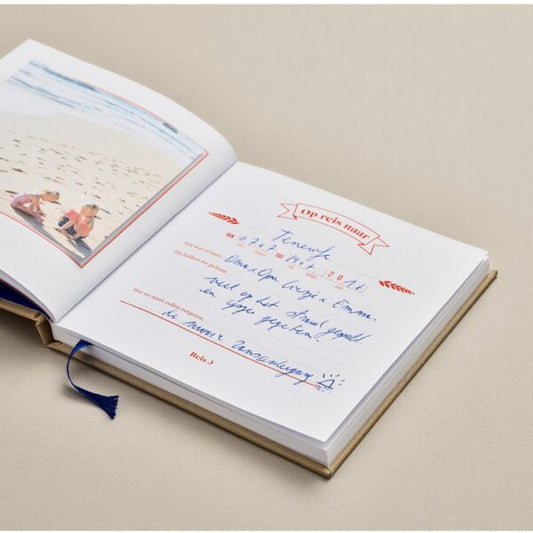 Op reis naar
Tenerife
VAN 07 07 TOT 14 07 2016
Wie was er mee:
Oma & Opa Luigi & Emma.
Dit hebben we gedaan:
veel op het strand gespeeld
en ijsjes gegeten!
Wat we nooit zullen vergeten:
de mooie zonsondergang
Reis 3